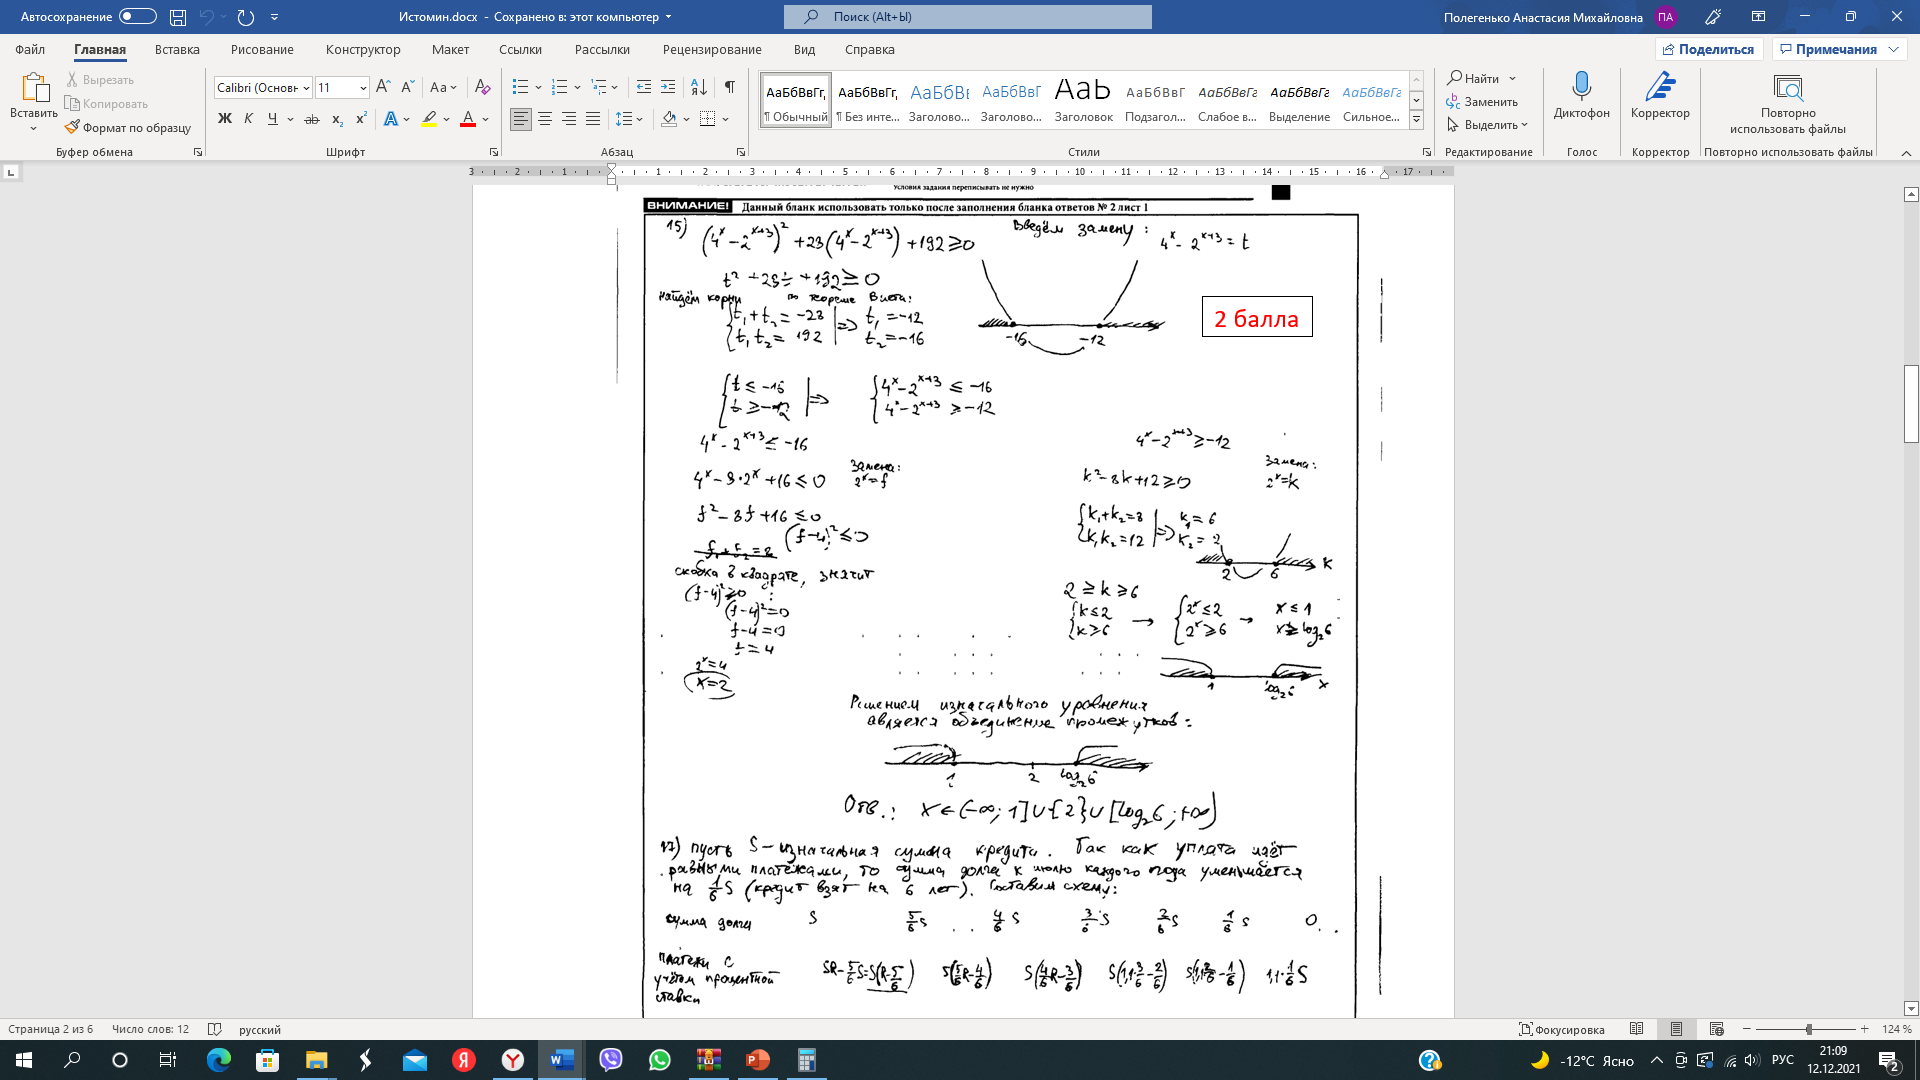 Автосохранение
Истомин.docx - Сохранено в: этот компьютер
Поиск (Alt+Ы)
Полегенько Анастасия Михайловна
ПА
Файл Главная Вставка Рисование Конструктор Макет Ссылки Рассылки Рецензирование Вид Справка
Поделиться
Примечания
Вставить
Вырезать
Копировать
Формат по образцу
Буфер обмена
Calibri (Основн 11
Шрифт
Абзац
АаБбВвГг, АаБбВвГг, АаБбВı АаБбВвГ АаЬ АаБбВвГ АаБбВвГг АаБбВвГг АаБбВвГг
¶ Обычный ¶ Без инте... Заголово... Заголово... Заголовок Подзагол... Слабое в... Выделение Сильное...
Стили
Найти
Заменить
Выделить
Редактирование
Диктофон
Голос
Корректор
Корректор
Повторно использовать файлы
Повторно использовать файлы
3 2 1 1 2 3 4 5 6 7 8 9 10 11 12 13 14 15 16 17
Условия задания переписывать не нужно
ВНИМАНИЕ! Данный бланк использовать только после заполнения бланка ответов № 2 лист 1
15) (4ˣ-2ˣ⁺³)² +23(4ˣ-2ˣ⁺³) +192≥0 Введём замену: 4ˣ- 2ˣ⁺³= t
t² +23t +192≥ 0
найдём корни по теореме Виета:
t₁+t₂ = -23 => t₁ =-12
t₁t₂ = 192 t₂ =-16
-16 -12
2 балла
t ≤ -16 => 4ˣ-2ˣ⁺³ ≤ -16
t ≥ -12 4ˣ-2ˣ⁺³ ≥ -12
4ˣ-2ˣ⁺³ ≤ -16
4ˣ-8·2ˣ+16 ≤ 0 Замена: 2ˣ=f
f²-8f+16 ≤0
(f-4)² ≤ 0
скобка в квадрате, значит
(f-4)²≥0 :
(f-4)²=0
f-4=0
f=4
2ˣ=4
x=2
4ˣ-2ˣ⁺³≥-12
k²-8k+12≥0 Замена: 2ˣ=k
k₁+k₂=8 => k₁=6
k₁k₂=12 k₂=2
2 6 k
2 ≥ k ≥ 6
k≤2 → 2ˣ≤2 → x≤1
k≥6 2ˣ≥6 x≥log₂6
1 log₂6 x
Решением изначального уровнения
является объединение промежутков:
1 2 log₂6
Отв.: x∈(-∞; 1]∪{2}∪[log₂6 ;+∞)
17) пусть S-изначальная сумма кредита. Так как уплата идёт
равными платежами, то сумма долга к июлю каждого года уменьшается
на 1/6 S (кредит взят на 6 лет). Составим схему:
сумма долга S 5/6 S 4/6 S 3/6 S 2/6 S 1/6 S 0
платежи с
учётом процентной
ставки
SR-5/6S=S(R-5/6) S(5/6R-4/6) S(4/6R-3/6) S(1,1·3/6-2/6) S(1,1·2/6-1/6) 1,1·1/6 S
Страница 2 из 6 Число слов: 12 русский
Фокусировка
124 %
-12°C Ясно
РУС
21:09
12.12.2021
2